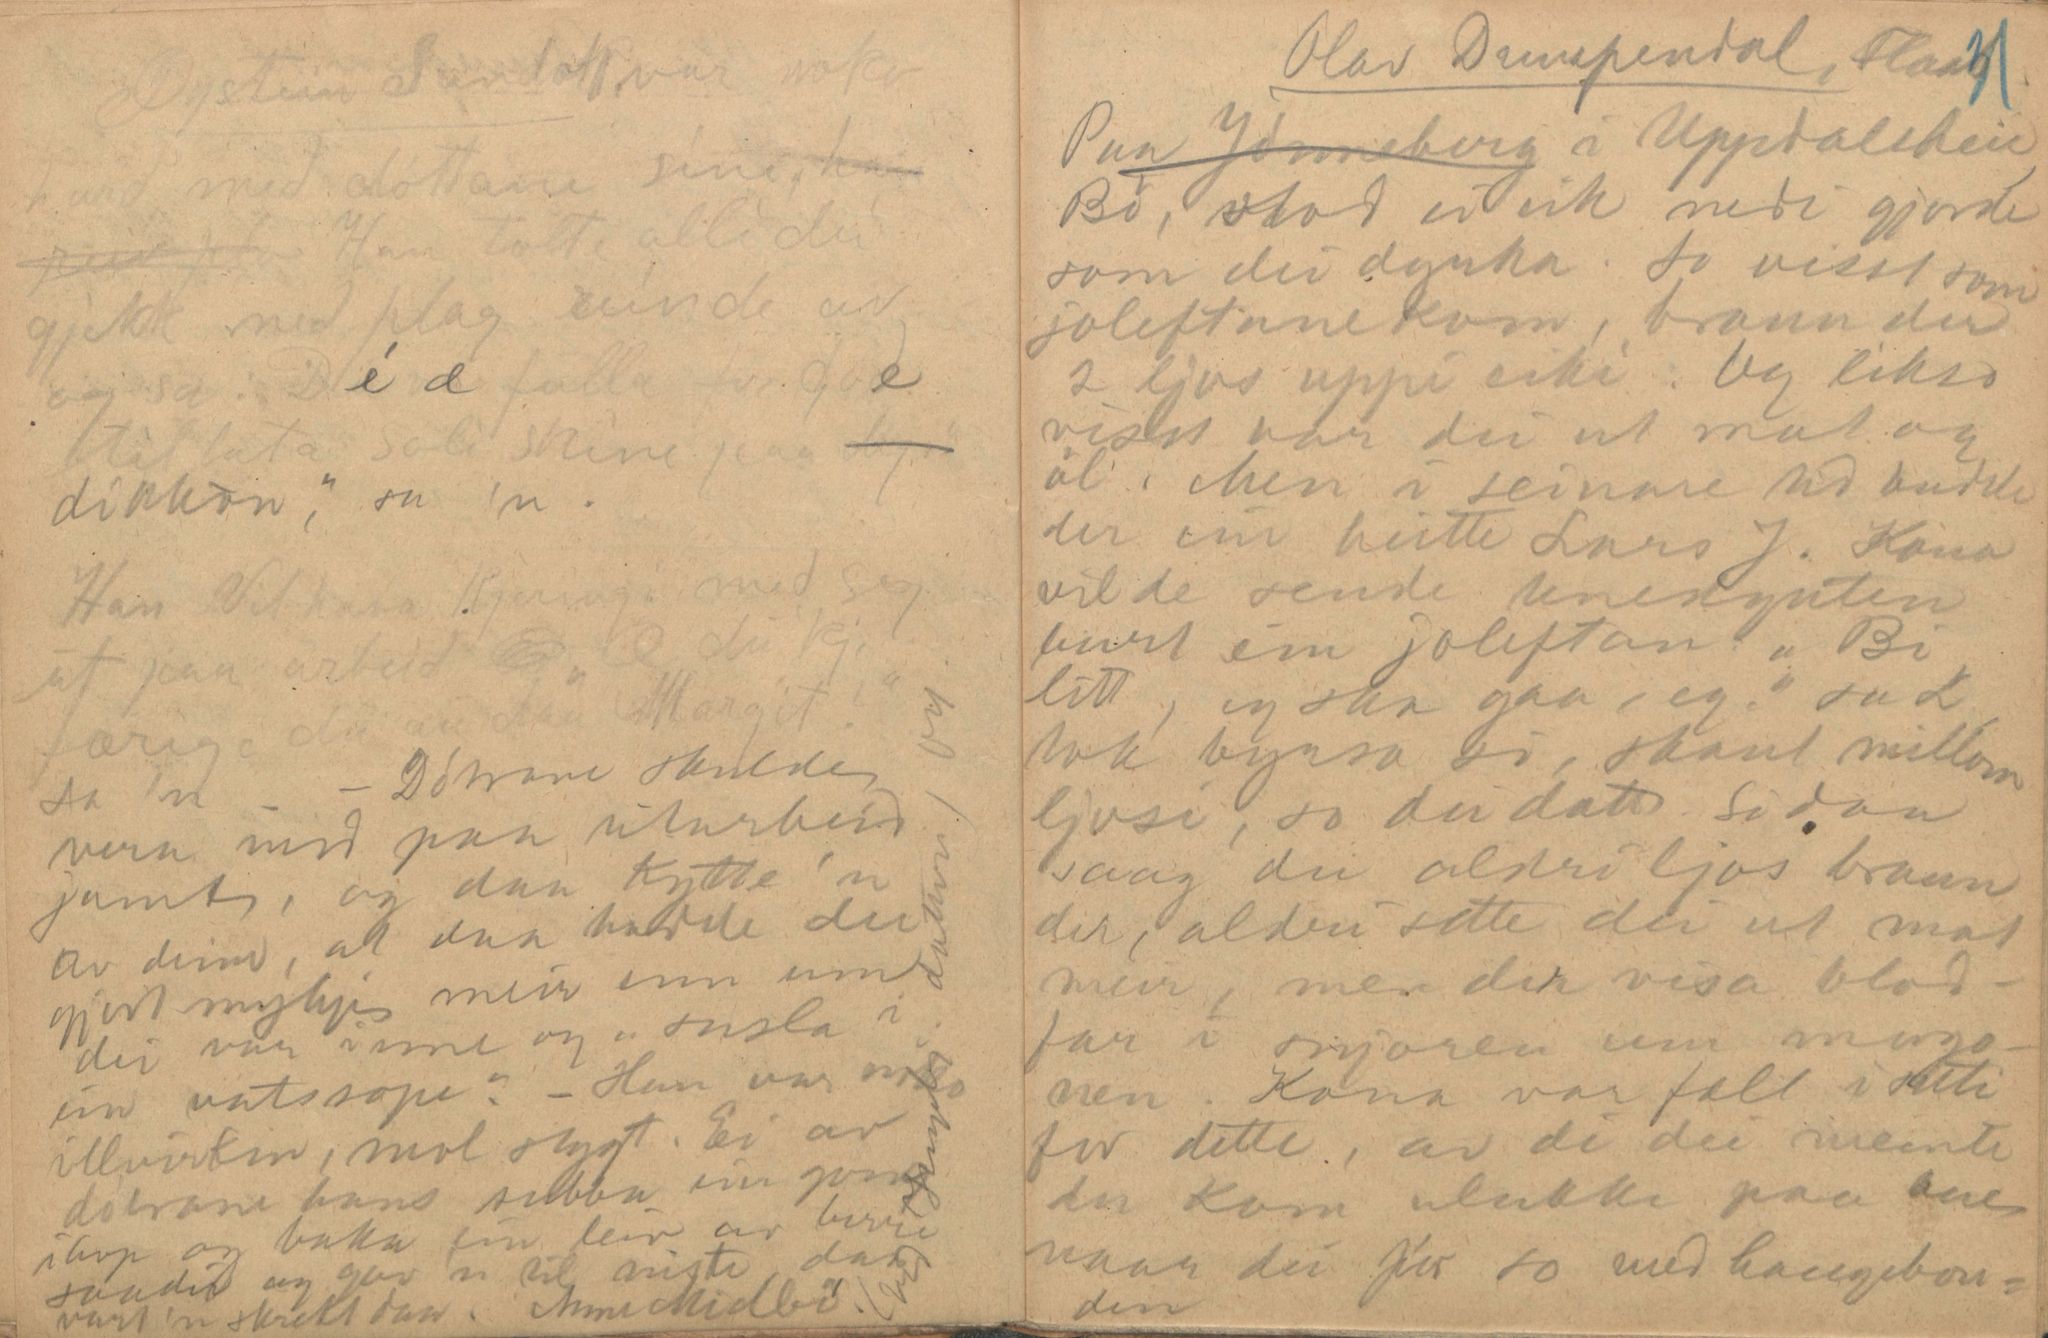 Øystein Sundott, var noko
hard med dottane sine, han
Han tolte alli dei
gjekk med plag unde av
og sa: D é d falla for go e
til lata soli skine paa
dikkòn," sa 'n.
Han vil hava kjeringi med seg
ut paa arbeid
Margit!"
sa 'n – – Dótrane skulde
vera med paa utarbeid
jamt, og daa kytte 'n
av deim, at daa hadde dei
gjort mykje meir enn um
dei var inne og "susla i
ein vatssope". – Han var noko
illvórten, mol stygt. Ei av
dótrane hans subba ein gong
ihop og baka ein leiv av berre
saadi og gav 'n til niste, daa
vart 'n skrekt daa. Anne Midbö.
Olav Drengsendal, Flaab.
31
Paa Jònneberg i Uppdalsheie,
Bö, stod ei eik nedi gjorde
som dei dyrka. So visst som
joleftanen kom, brann der
2 ljos uppi eiki. Og likso
visst bar dei ut mat og
öl. Men i seinare tid budde
der ein heitte Lars J. Kona
vilde sende tenesguten
burt ein joleftan. "Bi
litt, eg ska gaa, eg." sa L,
tok byrsa si, skaut millom
ljosi, so dei datt. Sidan
saag dei aldri ljos brann
der, aldri sette dei ut mat
meir, men der visa blod-
far i snjoren um morgo-
nen. Kona var fall i sutti
for dette, av di dei meinte
der kom ulukke paa huse
naar dei for so med haugebon-
den